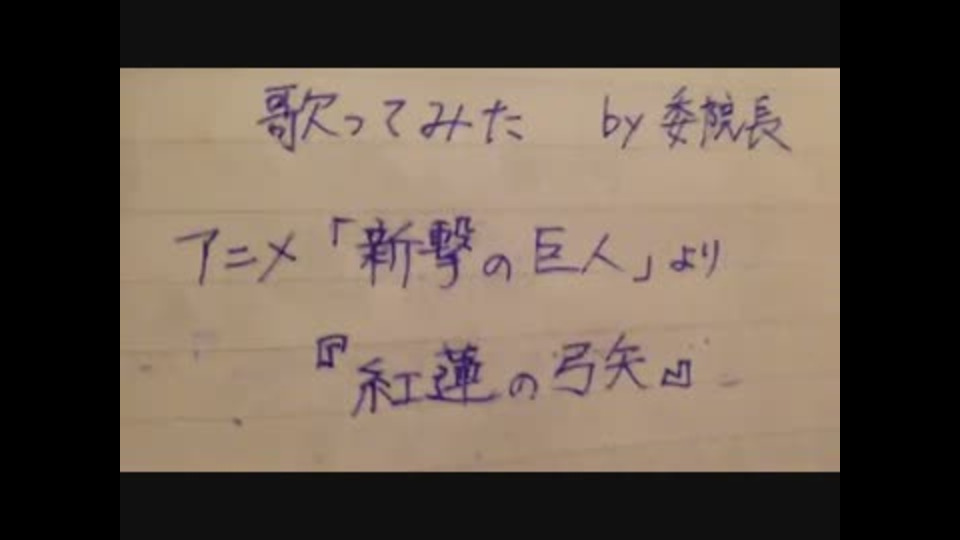 歌ってみた by 委院長
アニメ「新撃の巨人」より
『紅蓮の弓矢』